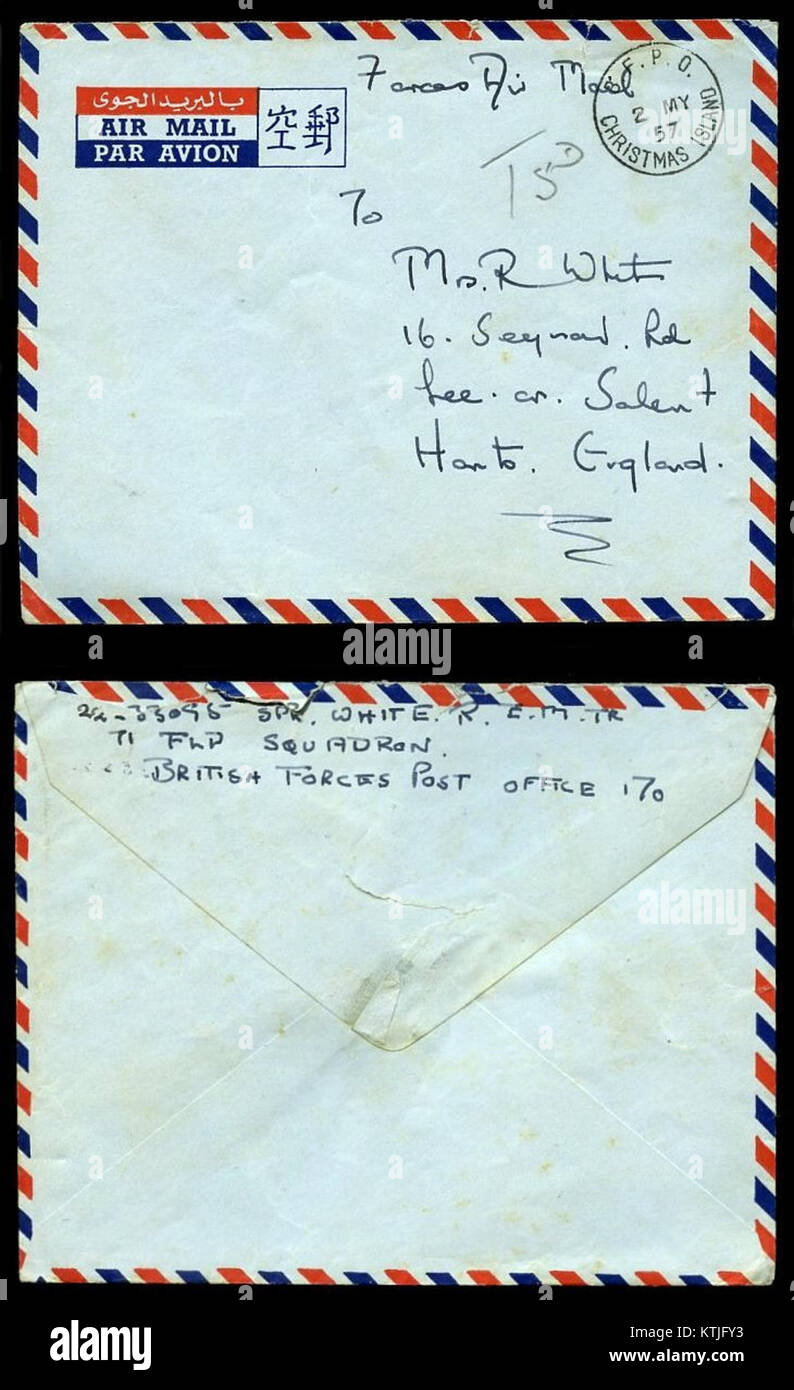 Forces Air Mail
F. P. O.
2 MY
57
CHRISTMAS ISLAND
بالبريد الجوى
AIR MAIL
PAR AVION
空郵
T 5D
To
Mrs. R White
16. Rd
Lee. on. Solent
Hants. England.
alamy
SPR. WHITE. R. E. M. TR
71 FLD SQUADRON.
BRITISH FORCES POST OFFICE 170
alamy
alamy
Image ID: KTJFY3
www.alamy.com